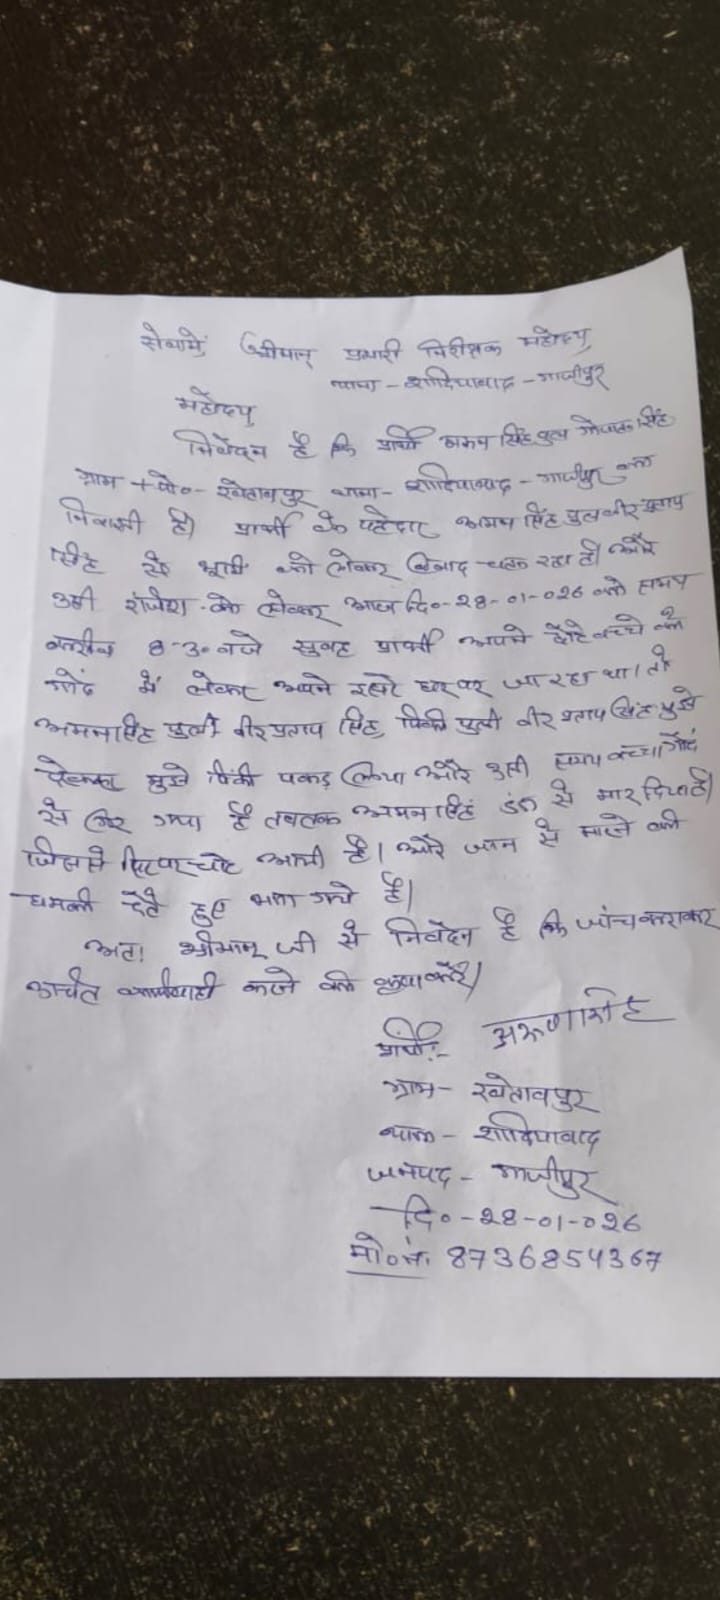 सेवामें, श्रीमान् प्रभारी निरीक्षक महोदय,
थाना - शादियाबाद - गाजीपुर
महोदय,
निवेदन है कि प्रार्थी अरुण सिंह पुत्र गोपाल सिंह
ग्राम + पो०- खेताबपुर थाना- शादियाबाद - गाजीपुर का
निवासी है। प्रार्थी के पट्टीदार अमन सिंह पुत्र वीर प्रताप
सिंह से भूमि को लेकर विवाद चल रहा है। और
उसी रंजिश को लेकर आज दि०-28-01-026 को समय
करीब 8-30 बजे सुबह प्रार्थी अपने छोटे बच्चे को
गोंद में लेकर अपने घर पर जा रहा था। तो
अमन सिंह वीर प्रताप सिंह, पिंकी पुत्री वीर प्रताप सिंह मुझे
देखकर मुझे पिंकी पकड़ लिया और उसी समय बच्चा गोंद
से गिर गया है तबतक अमन सिंह डंडा से मार दिया है।
जिससे सिर पर चोट आयी है। और जान से मारने की
धमकी देते हुए भाग गये है।
अतः श्रीमान् जी से निवेदन है कि जांच कराकर
उचित कार्यवाही करने की कृपा करें।
प्रार्थी:- अरुण सिंह
ग्राम - खेताबपुर
थाना - शादियाबाद
जनपद - गाजीपुर
दि०-28-01-026
मो०नं. 8736854367